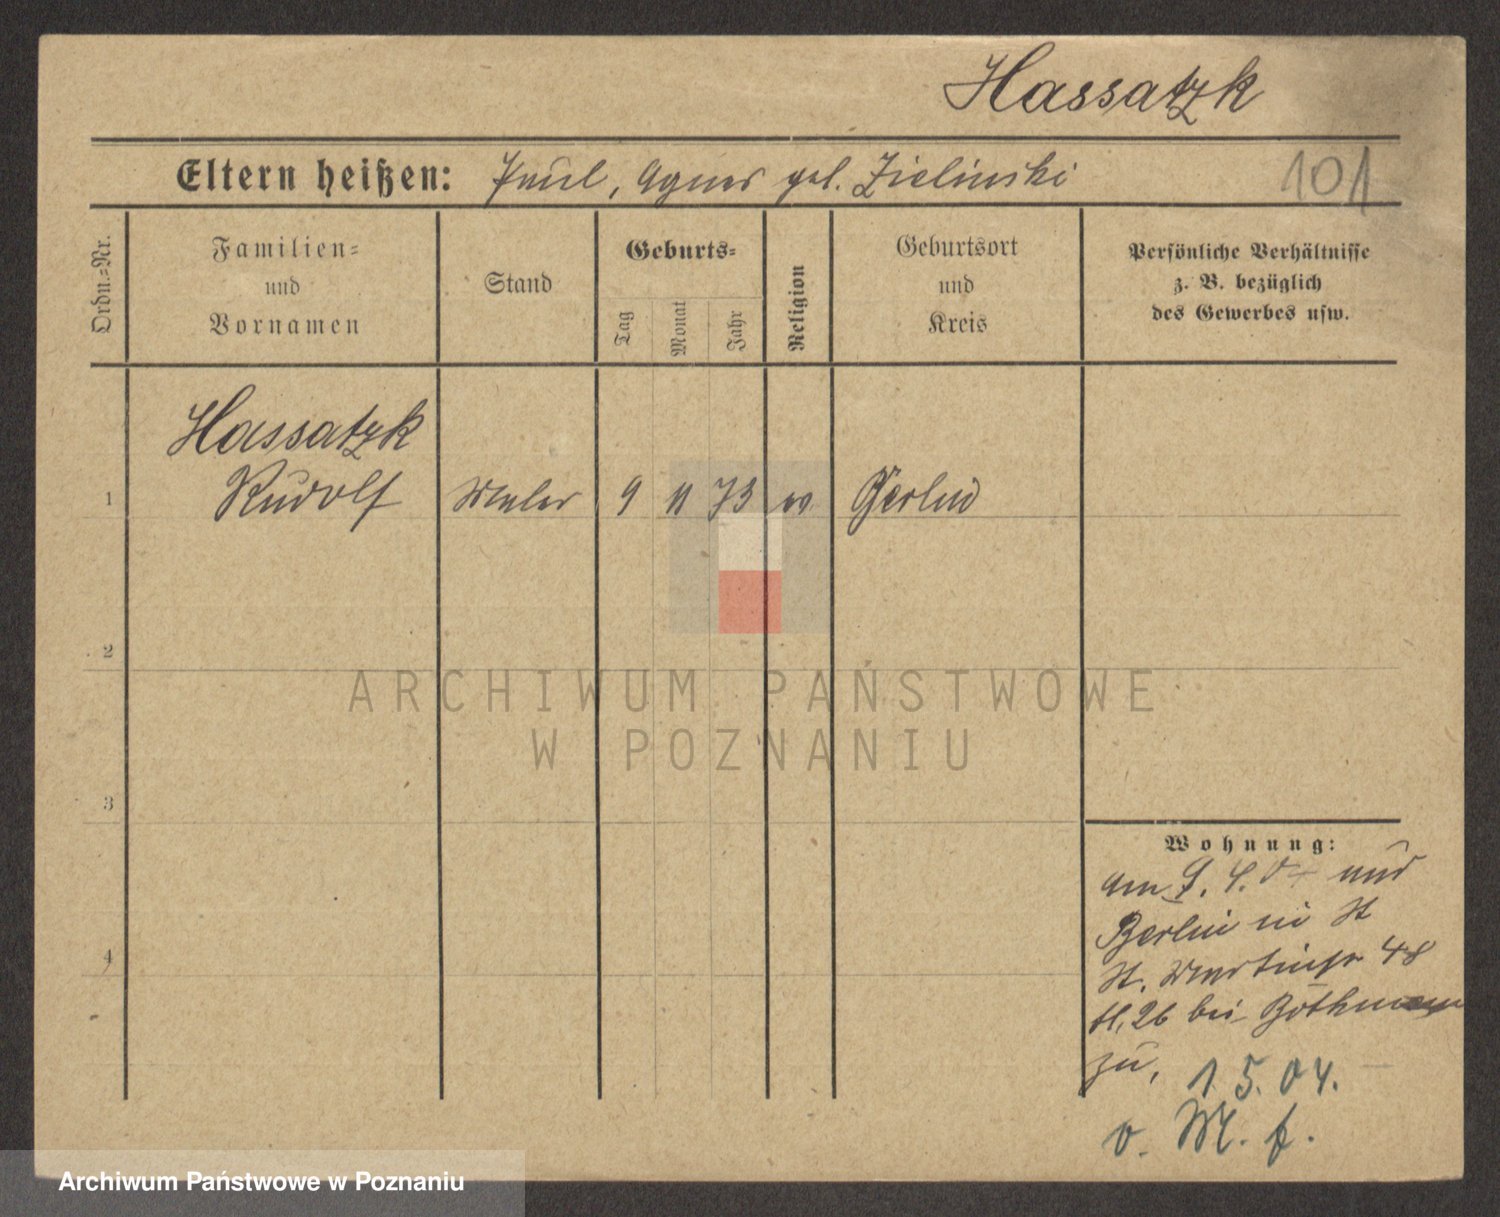 Hassatzk
Eltern heißen: Paul, Agnes geb. Zielinski
101
Ordn.=Nr.
Familien=
und
Vornamen
Stand
Geburts=
Tag
Monat
Jahr
Religion
Geburtsort
und
Kreis
Persönliche Verhältnisse
z. B. bezüglich
des Gewerbes usw.
Hassatzk
1 Rudolf Maler 9 11 73 Berlin
2
3
4
Wohnung:
am 9. 4. 04
Berlin in St
St. Martinstr 48
26 bei
zu.
1. 5. 04.
v. M. f.
ARCHIWUM PAŃSTWOWE
W POZNANIU
Archiwum Państwowe w Poznaniu